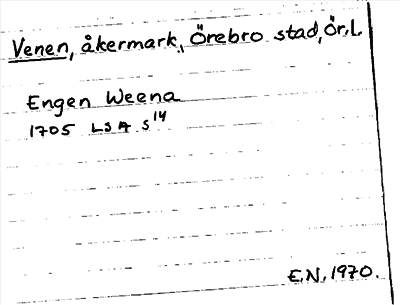 Venen, åkermark, Örebro stad, Ör.L.
Engen Weena
1705 LSA S14
E.N. 1970.